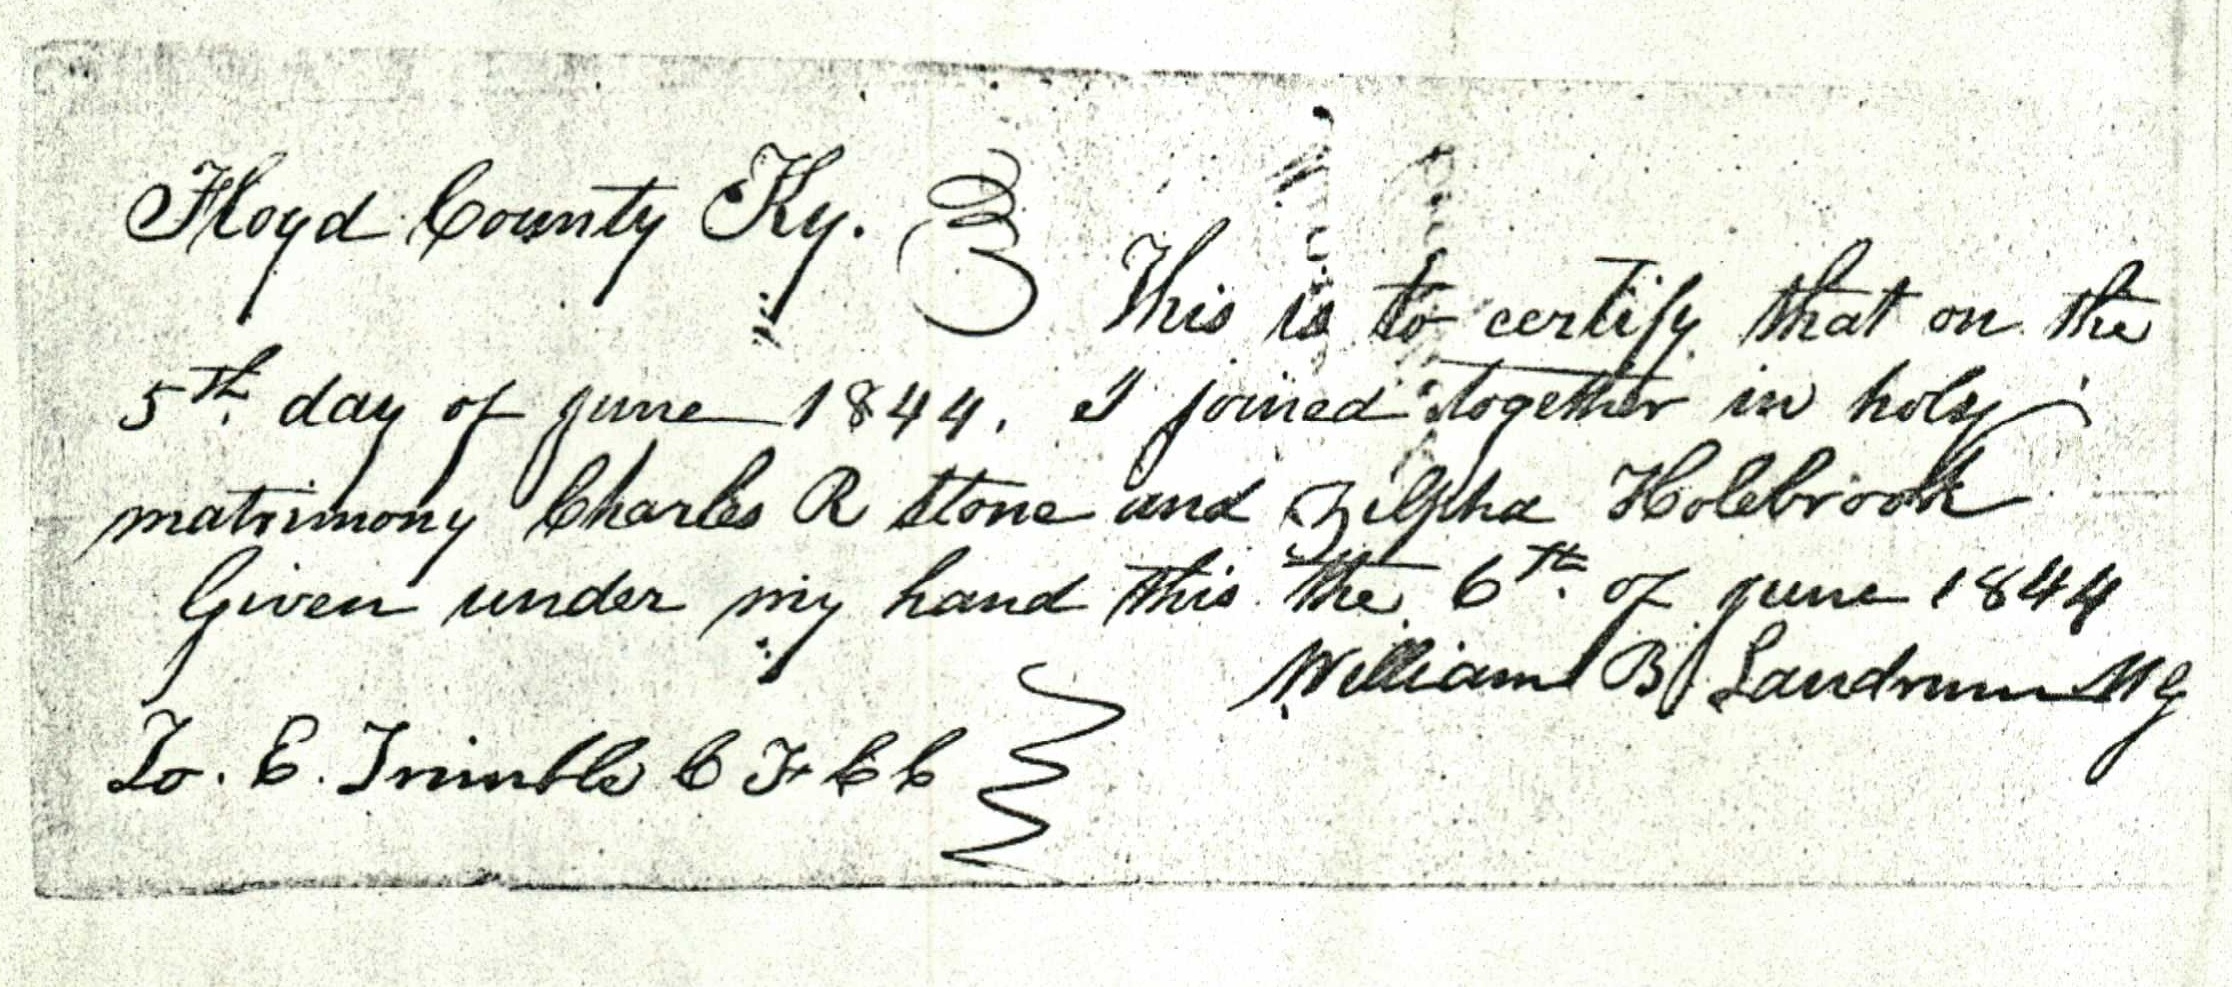 Floyd County Ky.
This is to certify that on the
5th. day of june 1844. I joined together in holy
matrimony Charles R Stone and Zilpha Holebrook
Given under my hand this the 6th. of june 1844
William B Landrum MG
To. E. Trimble C F C C